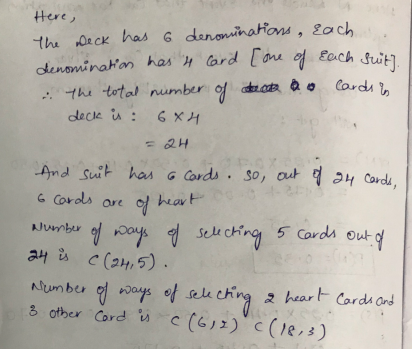 Here,
The Deck has 6 denominations, Each
denomination has 4 card [one of Each Suit].
∴ The total number of Cards in
deck is : 6 × 4
= 24
And suit has 6 cards. So, out of 24 cards,
6 cards are of heart
Number of ways of selecting 5 cards out of
24 is C(24,5).
Number of ways of selecting 2 heart cards and
3 other card is C(6,2) C(18,3)